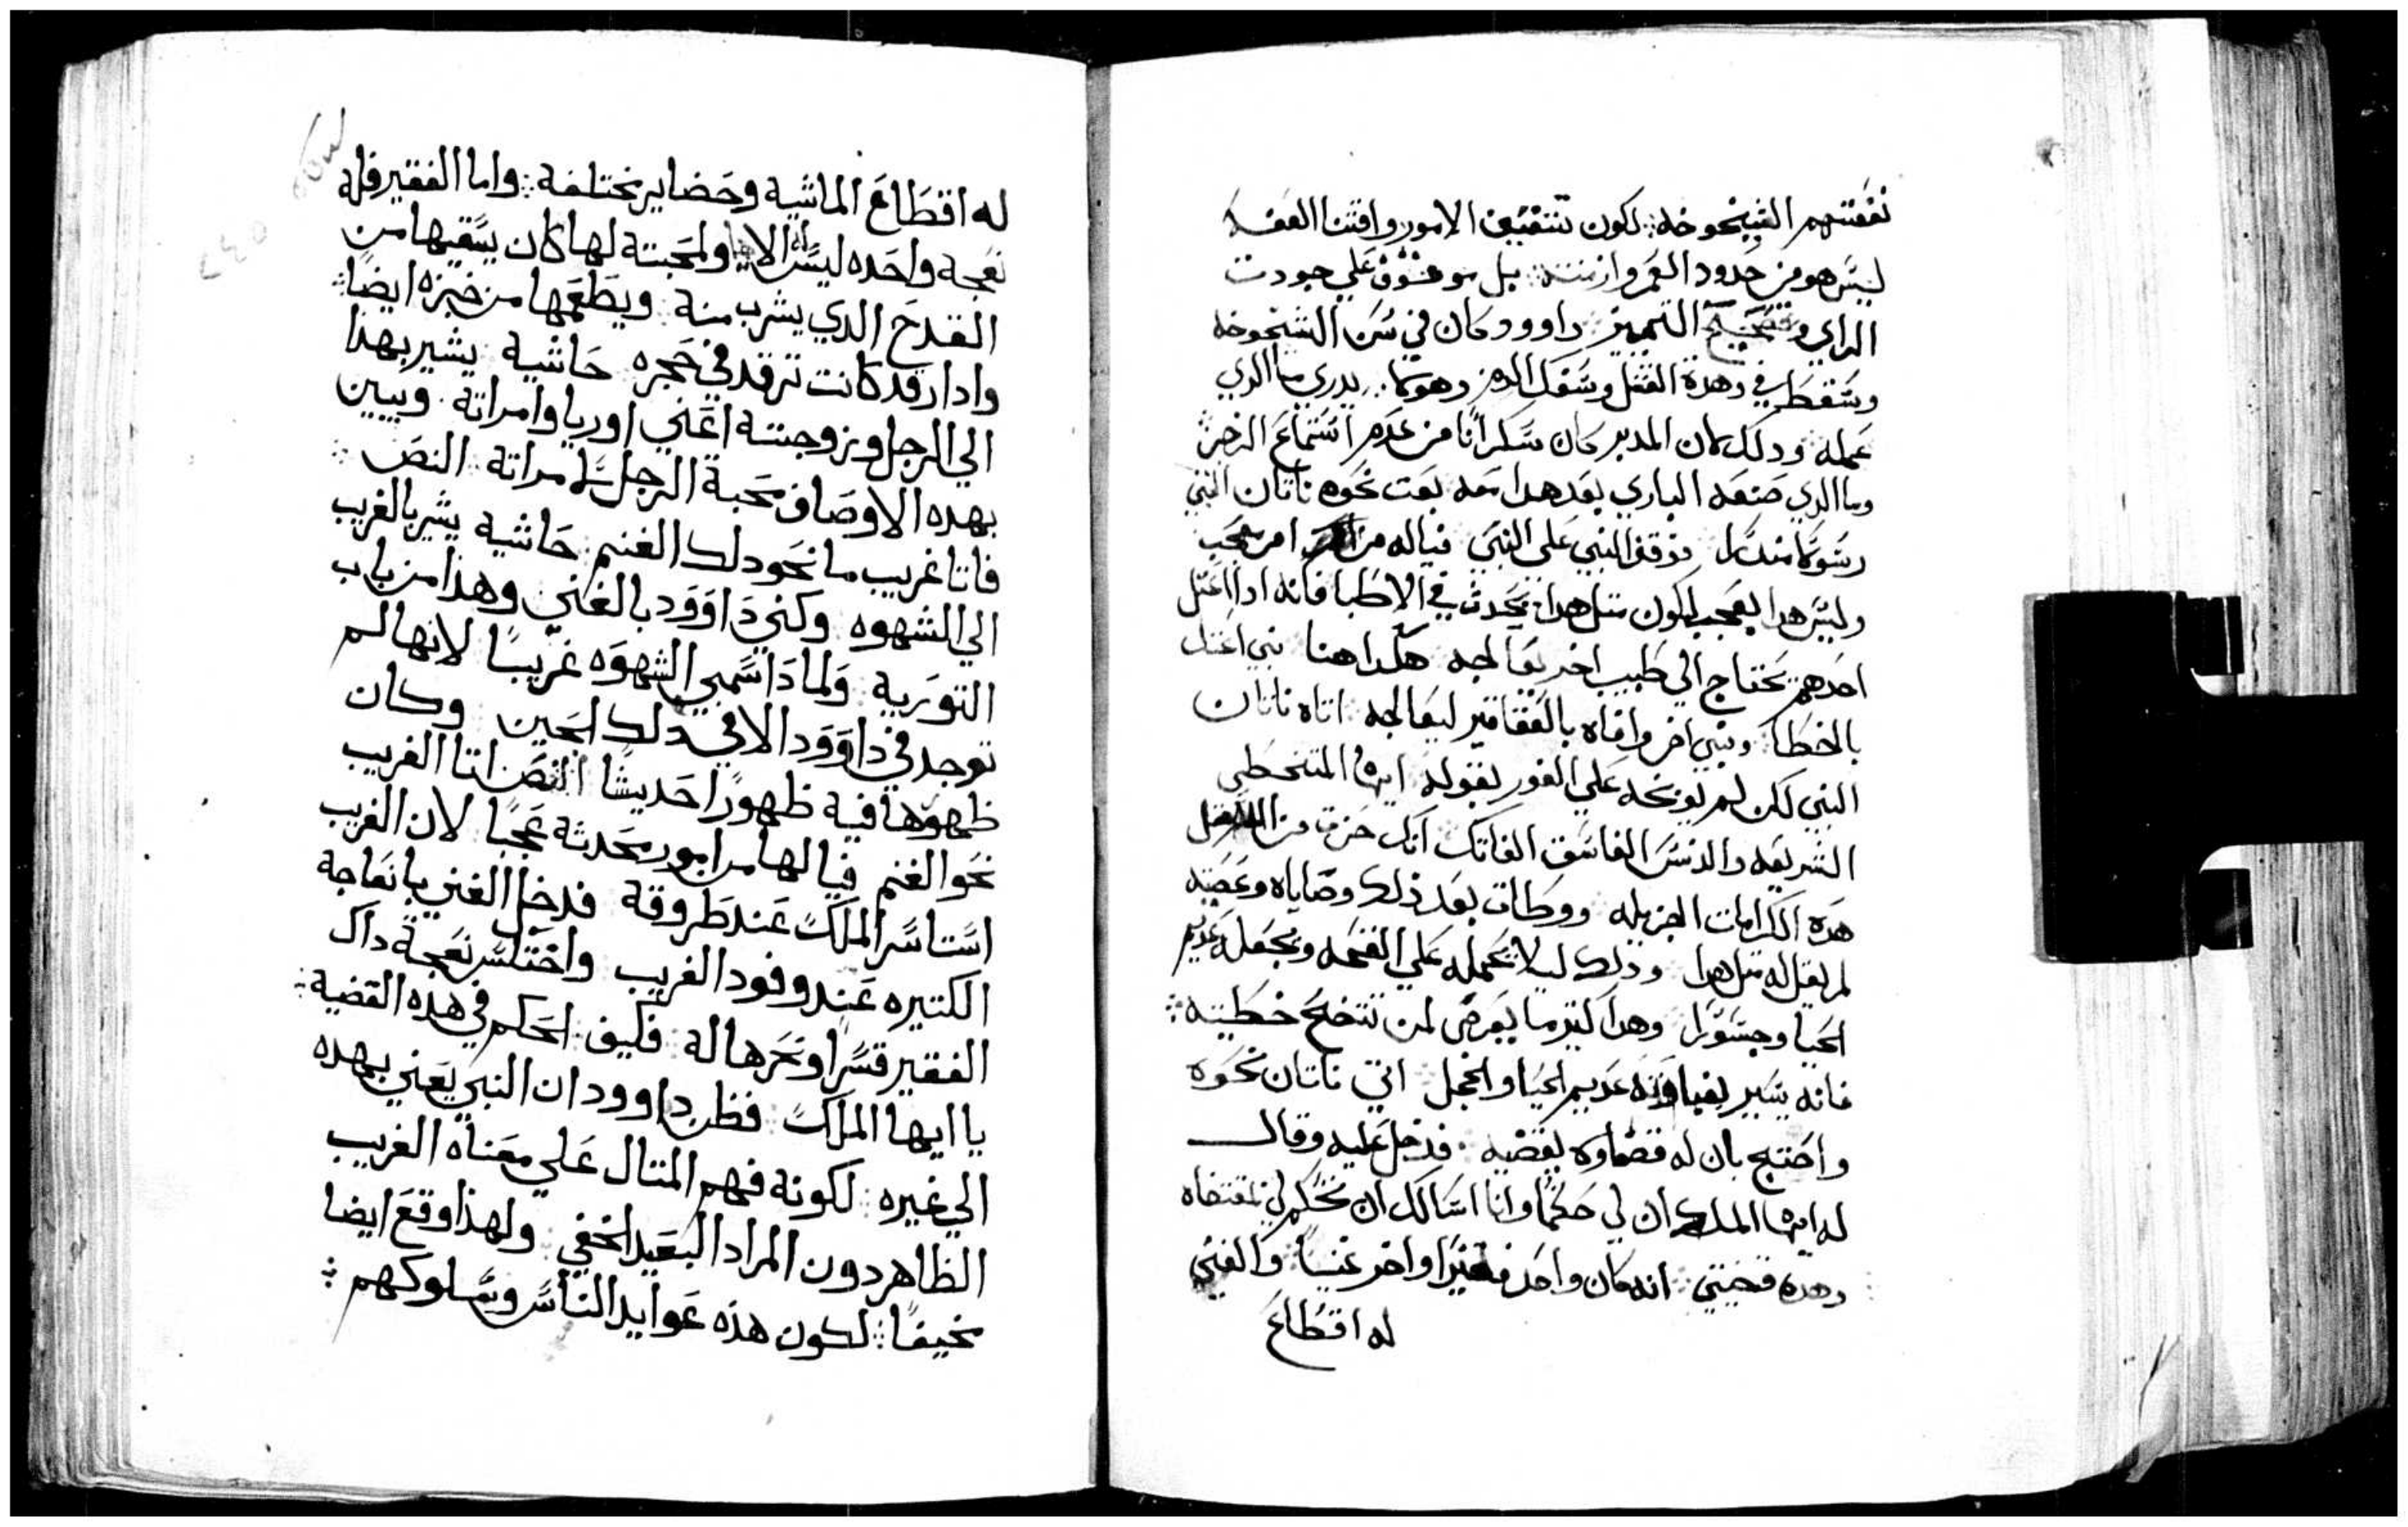 نفقتهم الشيخوخه: لكون تثقيف الامور واقتنا العفه
ليس هو من حدود العمر وازمنته: بل موقوف علي جودت
الراي وتصحيح التمييز: داوود كان في سن الشيخوخه
وسقط في وهدة القتل وسفك الدم وهو يدري ما الدي
عمله ودلك لان المدبر كان سكرانا من عدم استماع الزجر:
وما الدي صنعه الباري بعد هدا معه بعت نحوه ناتان النبي
رسولا منذرا فوقف النبي علي النبي فياله من امر عجب
وليس هدا بعجب لكون متل هدا يحدث في الاطبا فانه ادا اعتل
احدهم يحتاج الي طبيب اخر يعالجه هكدا هنا نبي اعتل
بالخطا: ونبي اخر وافاه بالعقاقير ليعالجه: اتاه ناتان
النبي لكن لم يوبخه علي الفور بقوله ايها المتخطي
الشريعه والدنس الفاسق الفاتك انك حزت من الله
هده الكرامات الجزيله ووطات بعد ذلك وصاياه وعصيته
لم يقل له متل هدا ودلك ليلا يحمله علي القحه ويجعله عديم
الحيا وجسورا وهدا كتيرما يعرض لمن تتضح خطيته:
فانه يسير بغباوته عديم الحيا والخجل اتي ناتان نحوه
واحتج بان له قضاوه بقضيه فدخل عليه وقال
له ايها الملك ان لي حكما وانا اسالك ان تحكم لي بمقتضاه
وهده قضيتي: انه كان واحد فقيرا واخر غنيا: والغني
له اقطاع
له اقطاع الماشيه وحضاير مختلفة: واما الفقير فله
نعجه واحده ليس له الاها ولمحبته لها كان يسقيها من
القدح الدي يشرب منه ويطعمها من خبزه ايضا:
وادا رقد كانت ترقد في حجره حاشيه يشير بهذا
الي الرجل وزوجته اعني اوريا وامراته وبيبن
بهده الاوصاف محبة الرجل لامراته النص
فاتا غريب ما نحو دلك الغنم: حاشيه يشير بالغريب
الي الشهوه وكني داوود بالغني وهذا من باب
التوريه ولما دا سمي الشهوه غريبا لانها لم
توجد في داوود الا في دلك الحين وكان
ظهورها فيه ظهورا حديثا النص اتا الغريب
نحو الغنم فيالها من امور محدثة عجبا لان الغريب
استاسر الملك عند طروقة فدخل الغني بانعاجه
الكتيره عند وفود الغريب واختلس نعجة داك
الفقير قسرا ونحرها له فكيف الحكم في هذه القضيه:
يا ايها الملك فظن داوود ان النبي يعني بهده
الي غيره: لكونه فهم المتال علي معناه الغريب
الظاهر دون المراد البعيد الخفي ولهذا وقع ايضا
مخيفا: لكون هذه عوايد الناس وسلوكهم: